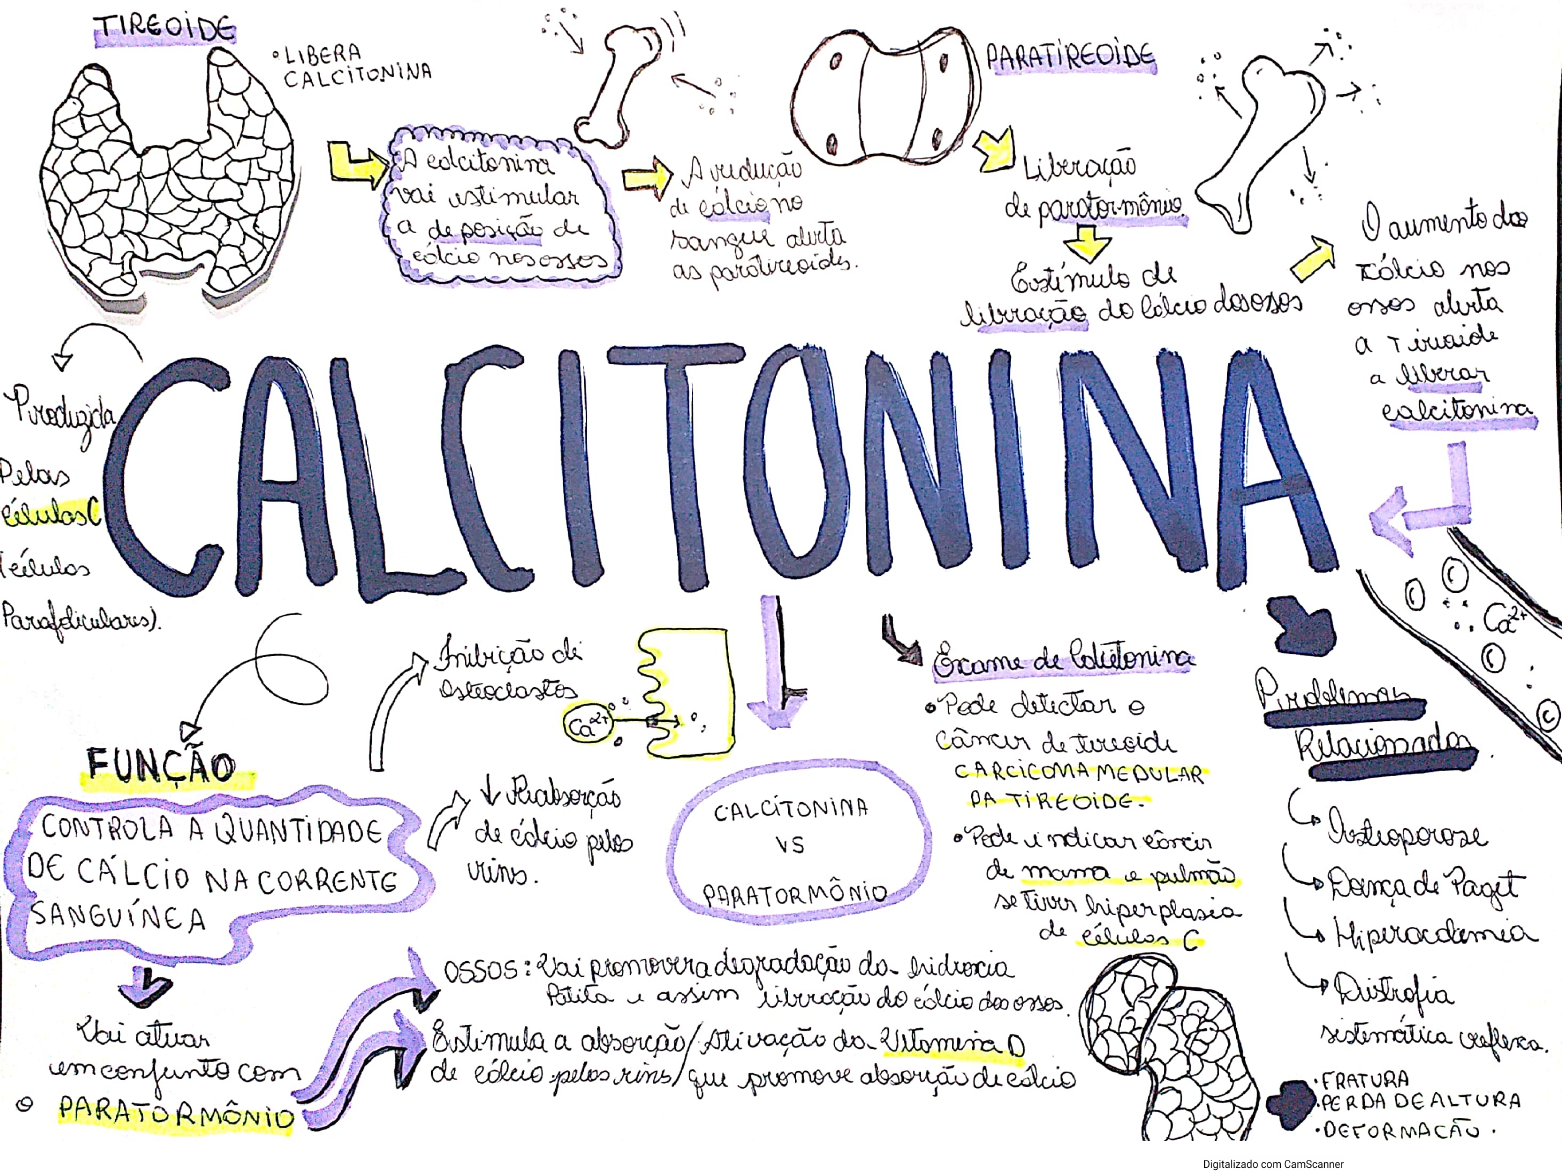 TIREOIDE
• LIBERA
CALCITONINA
A calcitonina
vai estimular
a deposição de
cálcio nos ossos
A redução
de cálcio no
sangue alerta
as paratireoides.
PARATIREOIDE
Liberação
de paratormônio.
Estímulo de
liberação do Cálcio dos ossos
O aumento do
cálcio nos
ossos alerta
a Tireoide
a liberar
calcitonina
Produzida
Pelas
células C
(células
Parafoliculares).
CALCITONINA
Ca²⁺
FUNÇÃO
CONTROLA A QUANTIDADE
DE CÁLCIO NA CORRENTE
SANGUÍNEA
Inibição de
Osteoclastos
Ca²⁺
↓ Reabsorção
de cálcio pelos
rins.
Vai atuar
em conjunto com
o PARATORMÔNIO
OSSOS: Vai promover a degradação da hidroxia
Patita e assim liberação do cálcio dos ossos.
Estimula a absorção / Ativação da Vitamina D
de cálcio pelos rins / que promove absorção de cálcio
CALCITONINA
VS
PARATORMÔNIO
Exame de Calcitonina
• Pode detectar o
câncer de tireoide
CARCICOMA MEDULAR
DA TIREOIDE.
• Pode indicar câncer
de mama e pulmão
se tiver hiperplasia
de células C
Problemas
Relacionados.
Osteoporose
Doença de Paget
Hiperacdemia
Distrofia
sistemática reflexa.
• FRATURA
• PERDA DE ALTURA
• DEFORMAÇÃO.
Digitalizado com CamScanner